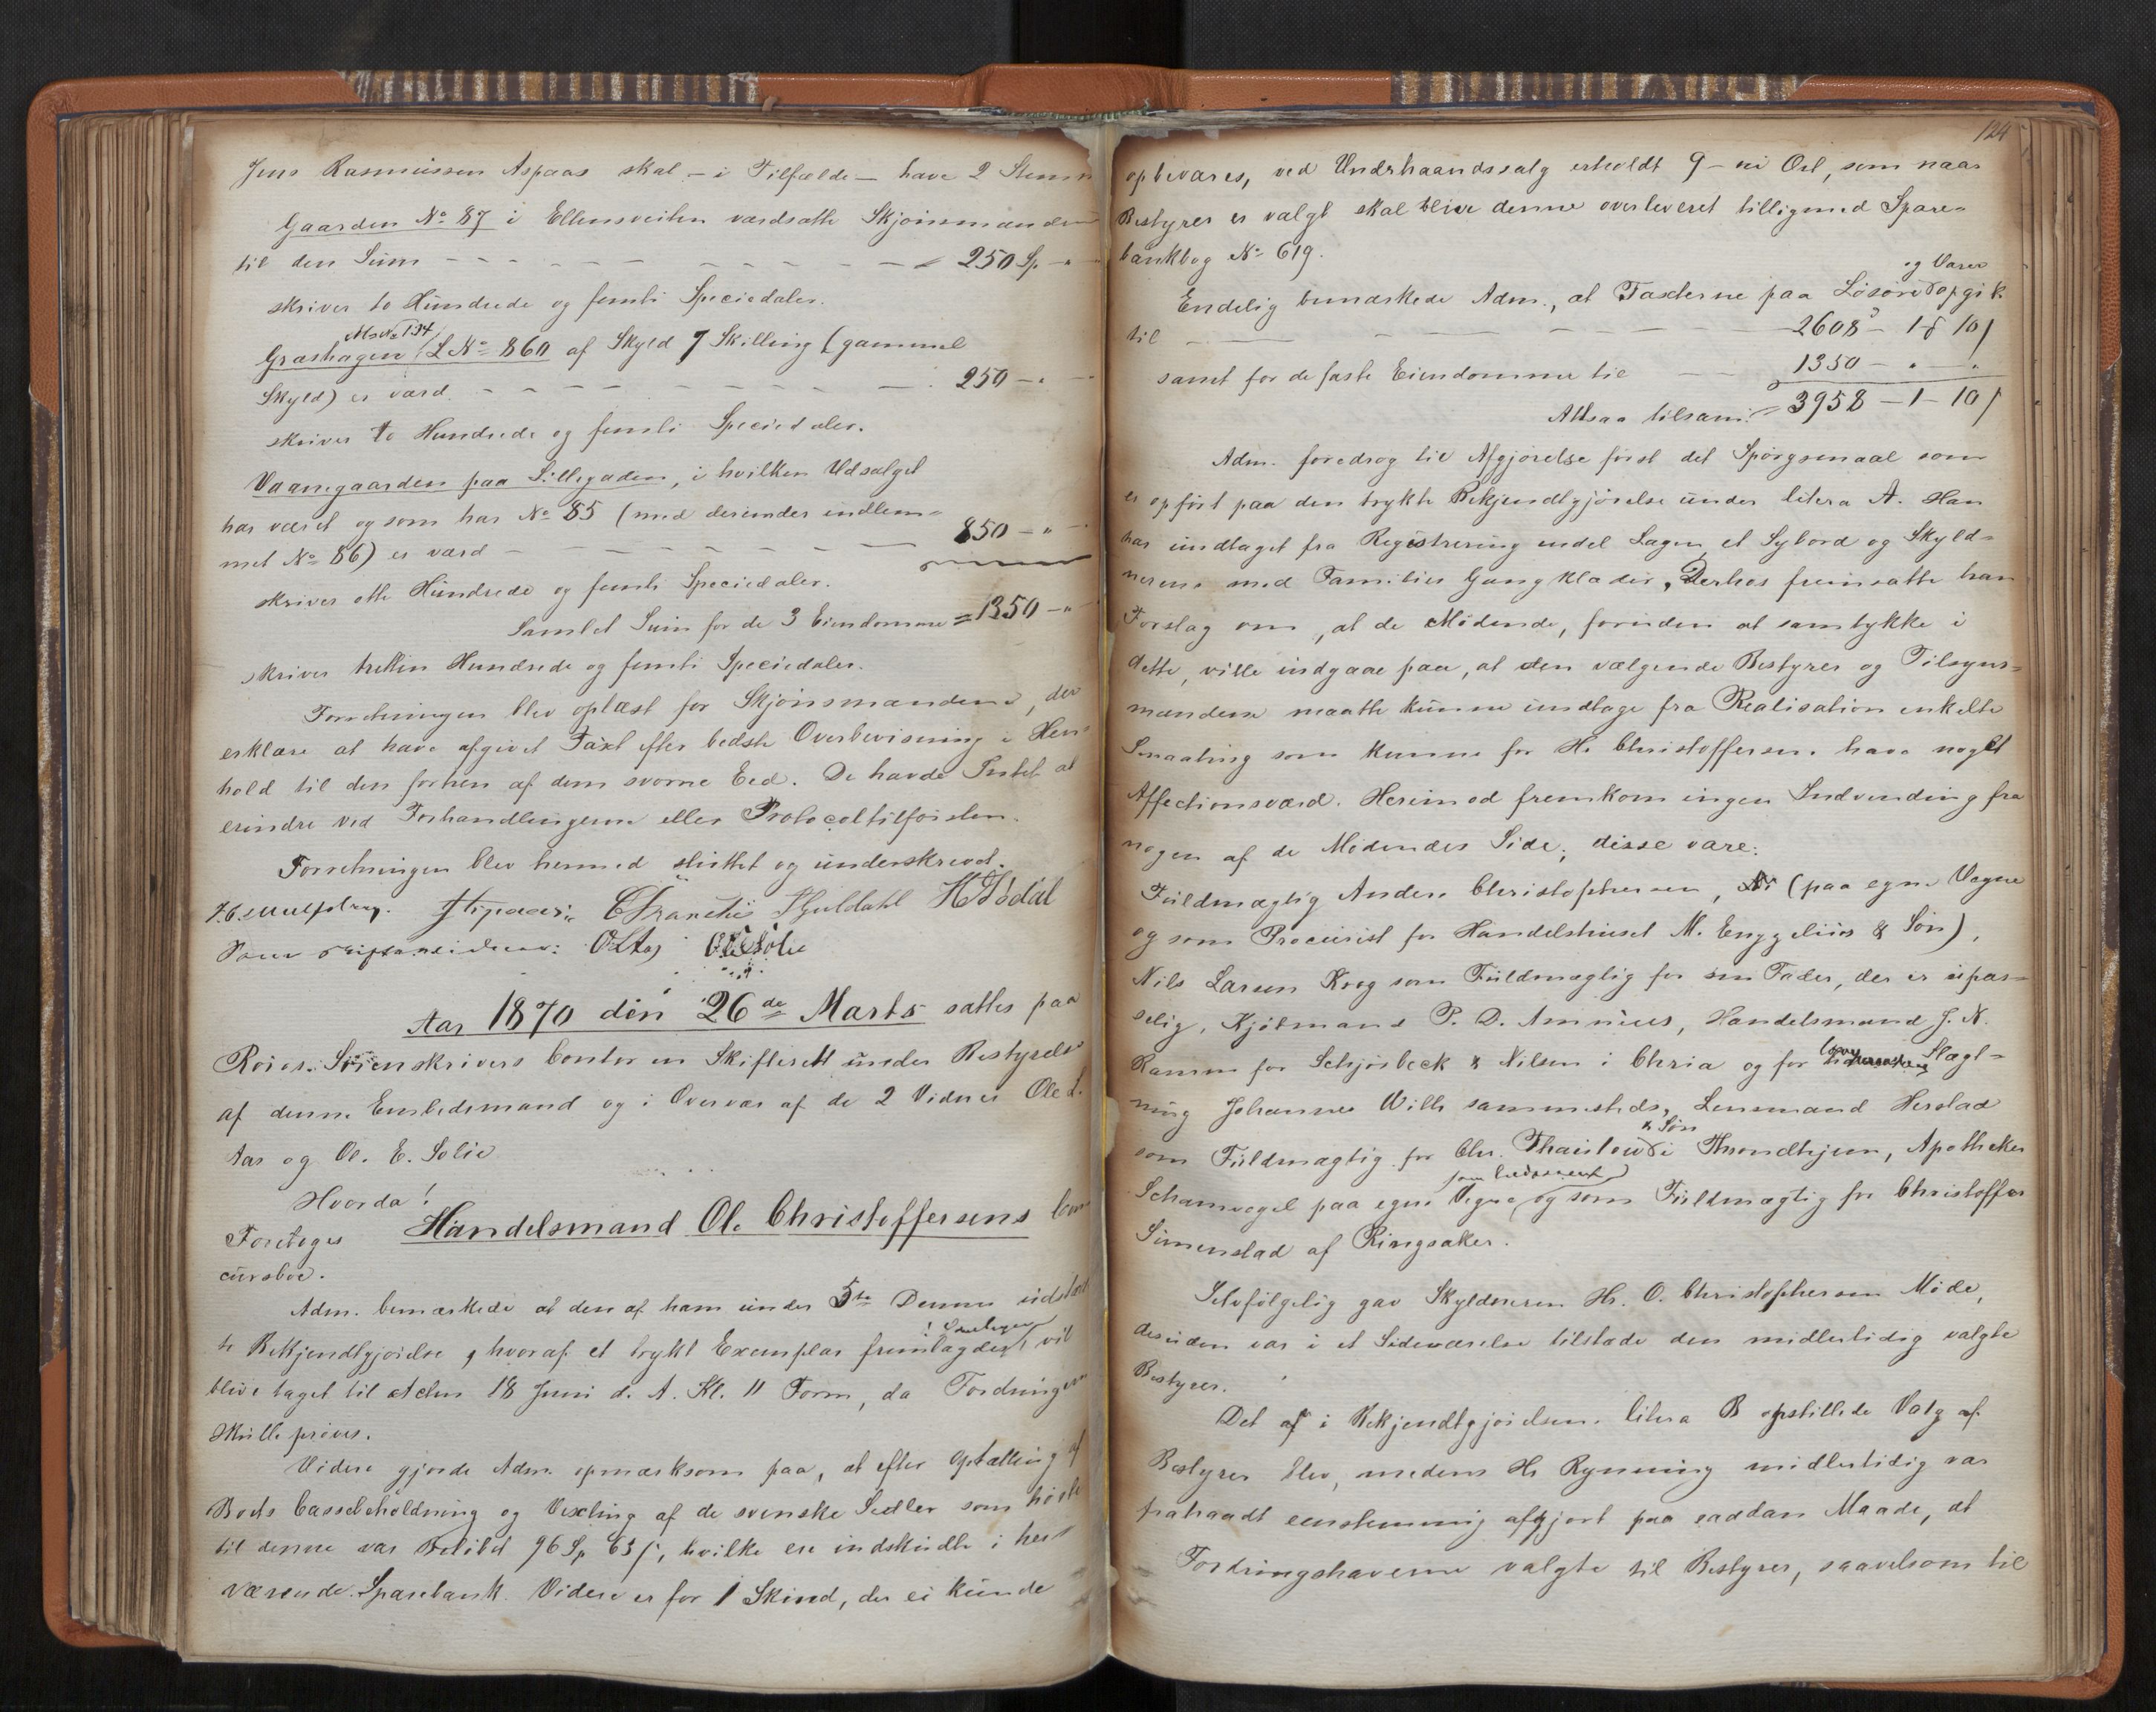 Jens Rasmussen Aspaas skal - i Tilfælde - have 2 Stemm
Gaarden No 87 i Ellensveiten værdsatte Skjønsmænden
til den Sum - - - - - - - - 250 Sp - "
skriver to Hundrede og femti Speciedaler.
Ms No 134
Græshagen L No 860 af Skyld 7 Skilling (gammel
Skyld) er værd - - - - - - - 250 - "
skriver to Hundrede og femti Speciedaler.
Vaanegaarden paa Lillegaden, i hvilken Udsalget
har været og som har No 85 (med derunder indlem=
met No 86) er værd - - - - - - 850 - "
skriver otte Hundrede og femti Speciedaler.
Samlet Sum for de 3 Eiendomme = 1350 - "
skriver tretten Hundrede og femti Speciedaler.
Forretningen blev oplæst for Skjønsmændene, der
erklære at have afgivet Taxt efter bedste Overbeviisning i Hen
hold til den forhen af dem svorne Eed. De havde Intet at
erindre ved Forhandlingerne eller Protocoltilførslen.
Forretningen blev hermed sluttet og underskrevet.
Aar 1870 den 26de Marts sattes paa
Røros Sorenskrivers Contor en Skifteret under Bestyrelse
af denne Embedsmand og i Overvær af de 2 Vidner Ole L.
Aas og Ol. E. Solie
Hvorda!
Foretoges Handelsmand Ol. Christoffersens Con
cursboe.
Adm. bemærkede at den af ham under 5te Dennes udstæd
te Bekjendtgjørelse, hvoraf et trykt Exemplar fremlagdes, vil
blive taget til Actus 18 Juni d. A. Kl. 11 Form, da Fordringerne
skulle prøves.
Videre gjorde Adm. opmærksom paa, at efter Optælling af
Boets Cassebeholdning og Vexling af de svenske Sedler som hørte
til denne var Beløbet 96 Sp 63 s, hvilke ere indskudte i her
værende Sparebank. Videre er for 1 Skind, der ei kunde
124
opbevares, ved Underhaandssalg erholdt 9 - ni Ort, som naar
Bestyrer er valgt skal blive denne overleveret tilligemed Spare=
bankbog No 619.
og Varer
Endelig bemærkede Adm., at Taxterne paa Løsøre opgik
til - - - - - 2608 - 1 - 10 s
samt for de faste Eiendomme til - - 1350 - " - "
Altsaa tilsam: = 3958 - 1 - 10 s
Adm. foredrog til Afgjørelse først det Spørgsmaal som
er opført paa den trykte Bekjendtgjørelse under litera A. Han
har undtaget fra Registrering endel Lagen et Sybord og Skyld=
nerens med Families Gangklæder, Derhos fremsatte han
Forslag om, at de Mødende, foruden at samtykke i
dette, ville indgaae paa, at den vælgende Bestyrer og Tilsyns=
mændene maatte kunne undtage fra Realisation enkelte
Smaating som kunne for Hr Christoffersen have noget
Affectionsværd. Herimod fremkom ingen Indvending fra
nogen af de Mødendes Side; disse vare:
Fuldmægtig Anders Christophersen, (paa egne Vegne
og som Procurist for Handelshuset M. Engzelius & Søn),
Nils Larsen Krog som Fuldmægtig for sin Fader, der er upas=
selig, Kjøbmand P. D. Amnéus, Handelsmand J. N.
Ramm for Schjørbeck & Nilsen i Chria og for Slagt=
ning Johannes With sammesteds, Lensmand Herstad
& Søn
som Fuldmægtig for Chr. Thaulow i Throndhjem, Apotheker
Schanvogel paa egne Vegne og som Fuldmægtig for Christoffer
Simenstad af Ringsaker.
Selvfølgelig gav Skyldneren Hr. O. Christophersen Møde,
desuden var i et Sideværelse tilstæde den midlertidig valgte
Bestyrer.
Det af i Bekjendtgjørelsens litera B opstillede Valg af
Bestyrer blev, medens Hr Rynning midlertidig var
fratraadt eenstemmig afgjort paa saadan Maade, at
Fordringshaverne valgte til Bestyrer, saavelsom til